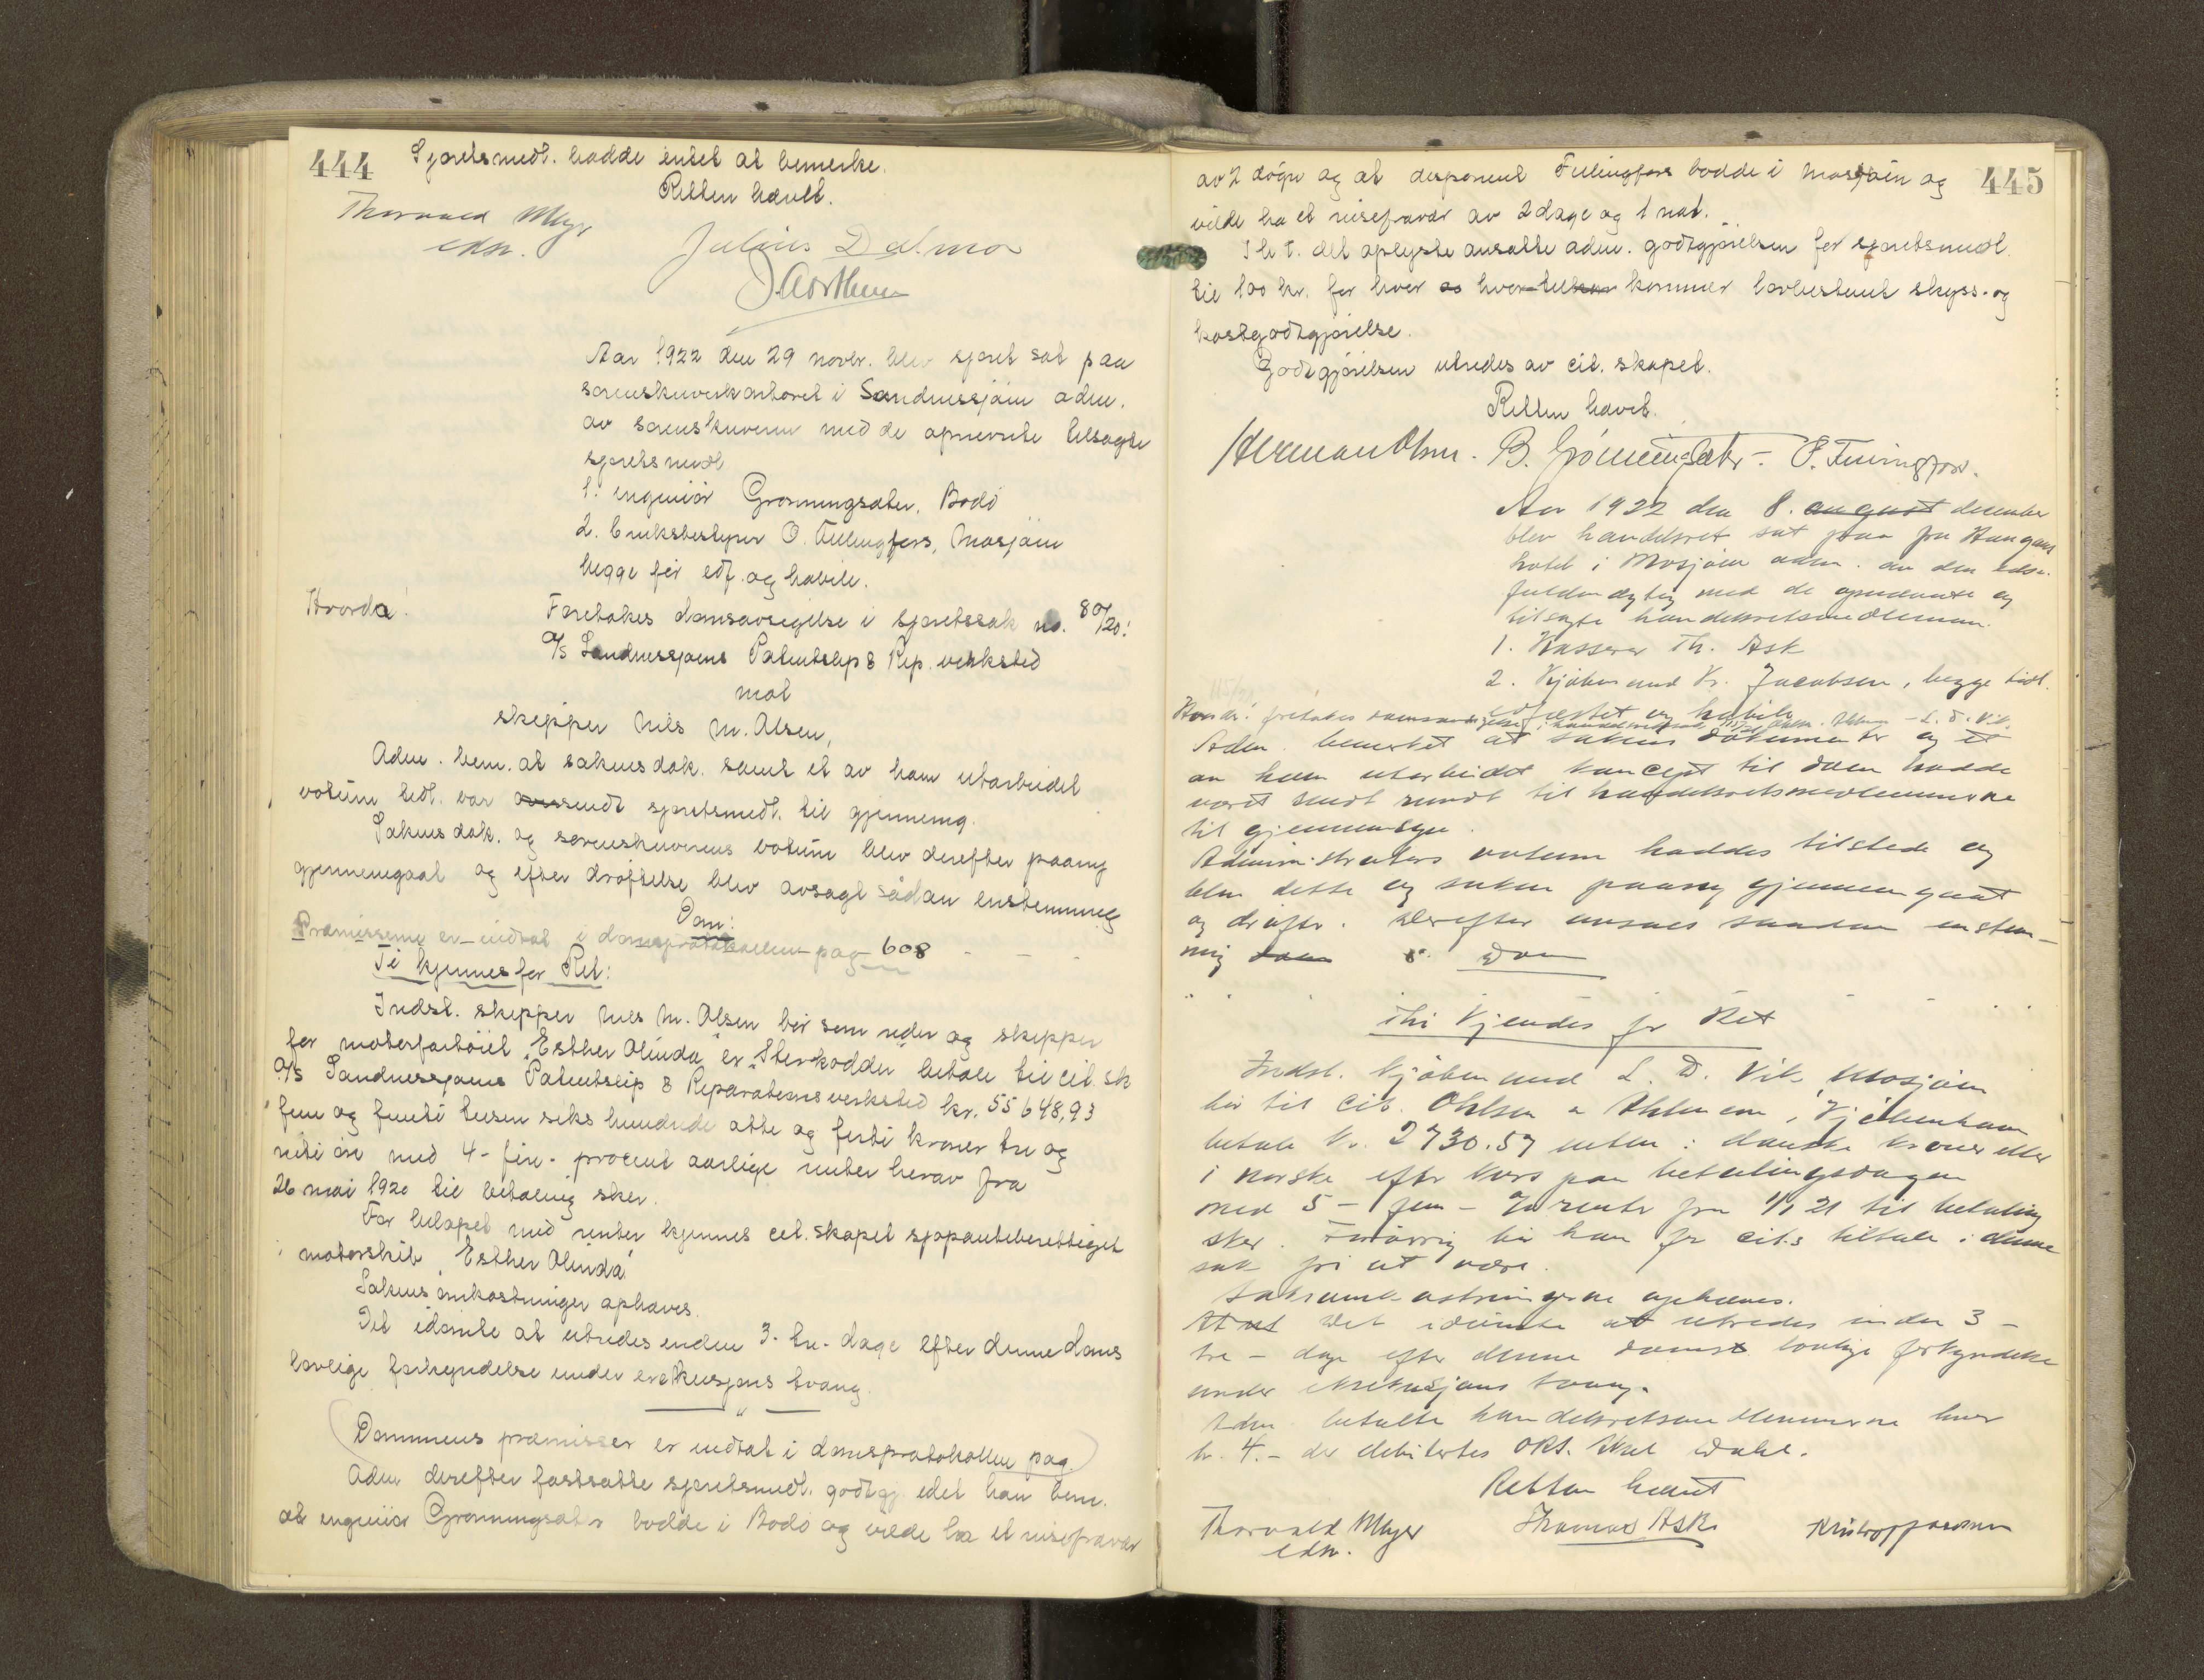 444
Sjøretsmedl. hadde intet at bemerke.
Retten hævet.
Thorvald Meyer
edsv.
Julius Dalmo
Aar 1922 den 29 novbr. blev sjøret sat paa
sorenskriverkontoret i Sandnessjøen adm.
av sorenskriveren med de opnevnte tilsagte
sjøretsmedl
1. ingeniør Grønningsæter, Bodø
2. bruksbestyrer O. Fellingfors, Mosjøen
begge før edf. og habile.
Hvorda!
Foretokes domsavsigelse i sjøretssak no. 80/20:
A/S Sandnessjøens Patentslip & Rep. verksted
mot
skipper Nils M. Olsen,
Adm. bem. at sakens dok. samt et av ham utarbeidet
votum tidl. var sendt sjøretsmedl. til gjennemg.
Sakens dok. og sorenskriverens votum blev derefter paany
gjennemgaat og efter drøftelse blev avsagt sådan enstemmig
Dom:
Præmisserne er indtat i domsprotokollen pag 608
Ti kjennes for Ret:
Indst. skipper Nils M. Olsen bør som reder og skipper
for motorfartøiet "Esther Olinda" ex "Sterkodder" betale til cit. sk
A/S Sandnessjøens Patentslip & Reparationsverksted kr. 55 648,93
fem og femti tusen seks hundrede otte og førti kroner tre og
niti øre med 4- fire- procent aarlige renter herav fra
26 mai 1920 til betaling sker.
For beløpet med renter kjennes cit. skapet sjøpanteberettiget
i motorskib "Esther Olinda"
Sakens omkostninger ophæves.
Det idømte at utredes inden 3- tre- dage efter denne doms
lovlige forkyndelse under eksekusjons tvang.
(Dommens præmisser er indtat i domsprotokollen pag.)
Adm derefter fastsatte sjøretsmedl. godtgj. idet han bem.
at ingeniør Grønningsæter bodde i Bodø og vilde ha et reisefravær
445
av 2 døgn og at disponent Fellingfors bodde i Mosjøen og
vilde ha et reisefravær av 2 dage og 1 nat.
I h. t. det oplyste ansatte adm. godtgjørelsen for sjøretsmedl.
til 100 kr. for hver kommer lovbestemt skyss- og
kostgodtgjørelse.
Godtgjørelsen utredes av cit. skapet.
Retten hævet.
Herman Olsen. B. Grønningsæter - O. Fellingfors.
Aar 1922 den 8. august december
blev handelsret sat paa fru Haugans
hotel i Mosjøen adm. av den edsv.
fuldmægtig med de opnævnte og
tilsagte handelsretsmedlemmer.
1. Kasserer Th. Ask
2. Kjøbmand Kr. Jacobsen, begge tidl.
edfæstet og habile
Adm. bemerket at sakens dokumenter og et
av ham utarbeidet koncept til dom hadde
været sendt rundt til handelsretsmedlemmerne
til gjennemsyn.
Administrators votum haddes tilstede og
blev dette og saken paany gjennemgaat
og drøftet. Derefter avsaes saadan enstem-
mig dom
Dom
Thi kjendes for Ret
Indst. kjøbmand L. D. Vik Mosjøen
bør til cit. Ohlsen & Ahlmann, Kjøbenhavn
betale kr. 2730.57 danske kroner eller
i norske efter kurs paa betalingsdagen
med 5 - fem - % rente fra 1/1 21 til betaling
sker. Forøvrig bør han for cit.s tiltale i denne
sak fri at være.
Saksomkostningerne ophæves.
Det idømte at utredes inden 3 -
tre - dage efter denne doms lovlige forkyndelse
under eksekusjons tvang.
Adm. betalte handelsretsmedlemmerne hver
kr. 4.- der debiteres
Retten hævet
Thorvald Meyer
edsv.
Thomas Ask